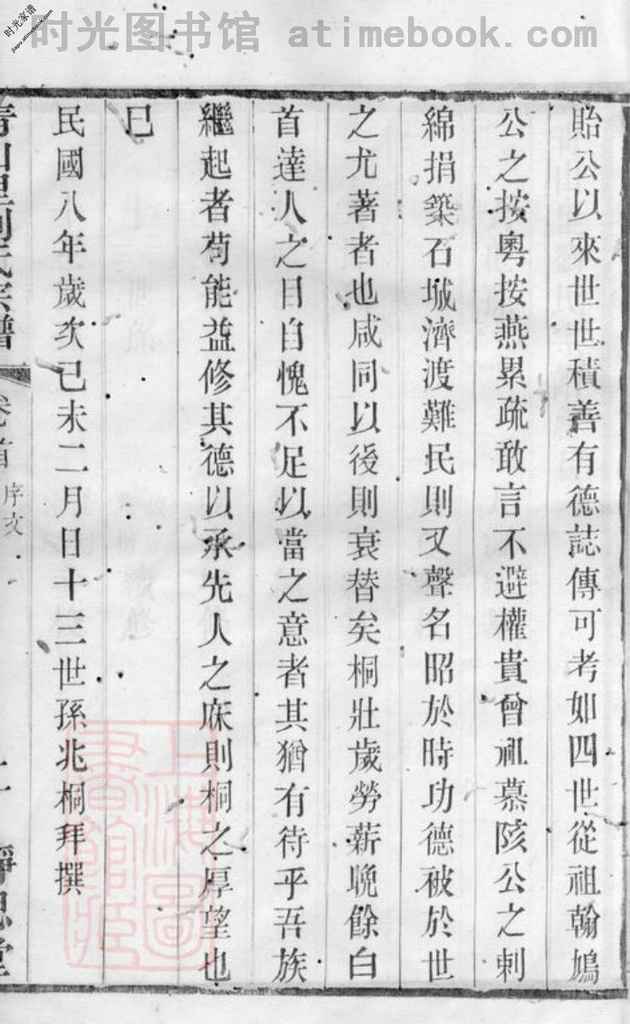 时光家谱
时光图书馆 atimebook.com
貽公以來世世積善有德誌傳可考如四世從祖翰鳩
公之按粵按燕累疏敢言不避權貴曾祖慕陔公之刺
綿捐築石城濟渡難民則又聲名昭於時功德被於世
之尤著者也咸同以後則衰替矣桐壯歲勞薪晩餘白
首達人之目自愧不足以當之意者其猶有待乎吾族
繼起者苟能益修其德以承先人之庥則桐之厚望也
已
民國八年歲次己未二月日十三世孫兆桐拜撰
氏宗譜
卷首 序文
上海圖書館藏